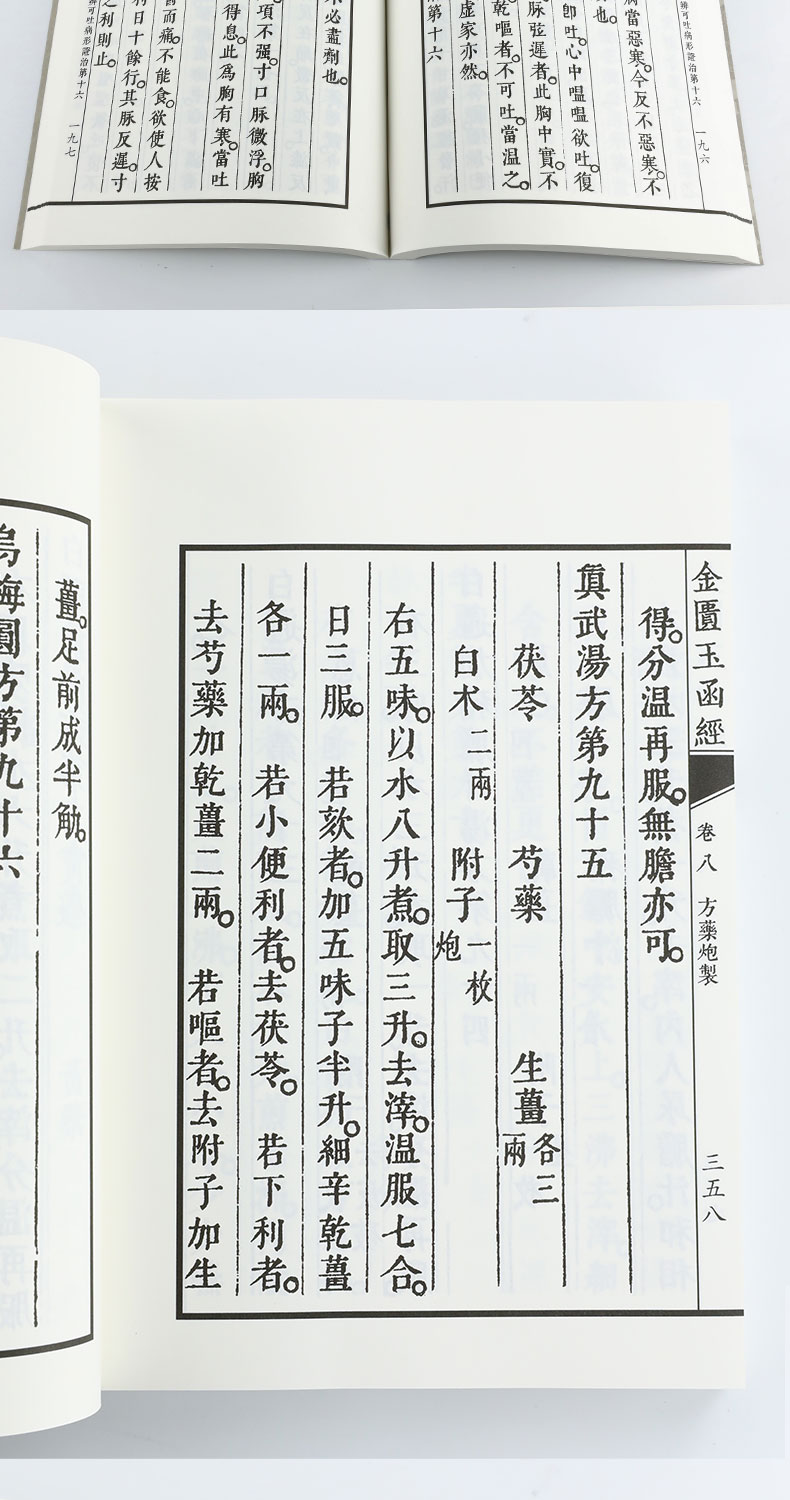 病當惡寒。今反不惡寒。不
卽吐。心中嗢嗢欲吐。復
脉弦遲者。此胸中實。不
乾嘔者。不可吐。當温之。
虚家亦然。
第十六
辨可吐病形證治第十六 一九六
必盡劑也。
項不强。寸口脉微浮。胸
得息。此爲胸有寒。當吐
而痛。不能食。欲使人按
日十餘行。其脉反遲。寸
之利則止。
辨可吐病形證治第十六 一九七
金匱玉函經 卷八 方藥炮製 三五八
得。分温再服。無膽亦可。
眞武湯方第九十五
茯苓 芍藥 生薑各三兩
白朮二兩 附子一枚炮
右五味。以水八升煮。取三升。去滓。温服七合。
日三服。 若欬者。加五味子半升。細辛乾薑
各一兩。 若小便利者。去茯苓。 若下利者。
去芍藥加乾薑二兩。 若嘔者。去附子加生
薑。足前成半觔。
烏梅圓方第九十六